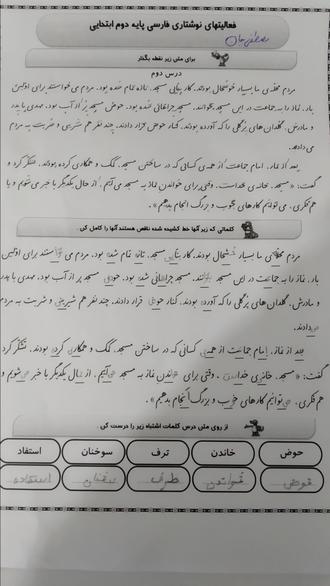 فعالیتهای نوشتاری فارسی پایه دوم ابتدایی
مصطفی جان
برای متن زیر نقطه بگذار
درس دوم
مردم محلّه‌ی ما بسیار خوشحال بودند. کار بنایی مسجد، تازه تمام شده بود. مردم می‌خواستند برای اوّلین
بار، نماز را به جماعت در این مسجد بخوانند. مسجد چراغانی شده بود. حوض مسجد پر از آب بود. مهدی با پدر
و مادرش، گلدان‌های پر گلی را که آورده بودند، کنار حوض قرار دادند. چند نفر هم شیرینی و شربت به مردم
می‌دادند.
بعد از نماز، امام جماعت از همه‌ی کسانی که در ساختن مسجد، کمک و همکاری کرده بودند، تشکّر کرد و
گفت: «مسجد، خانه‌ی خداست. وقتی برای خواندن نماز به مسجد می‌آییم، از حال یکدیگر با خبر می‌شویم و با
هم‌فکری، می‌توانیم کارهای خوب و بزرگ انجام بدهیم».
کلماتی که زیر آنها خط کشیده شده ناقص هستند آنها را کامل کن.
مردم محلّه‌ی ما بسیار خوشحال بودند. کار بنایی مسجد، تازه تمام شده بود. مردم می‌خواستند برای اوّلین
بار، نماز را به جماعت در این مسجد بخوانند. مسجد چراغانی شده بود. حوض مسجد پر از آب بود. مهدی با پدر
و مادرش، گلدان‌های پر گلی را که آورده بودند، کنار حوض قرار دادند. چند نفر هم شیرینی و شربت به مردم
می‌دادند.
بعد از نماز، امام جماعت از همه‌ی کسانی که در ساختن مسجد، کمک و همکاری کرده بودند، تشکّر کرد
گفت: «مسجد، خانه‌ی خداست. وقتی برای خواندن نماز به مسجد می‌آییم، از حال یکدیگر با خبر می‌شویم و
هم‌فکری، می‌توانیم کارهای خوب و بزرگ انجام بدهیم».
از روی متن درس کلمات اشتباه زیر را درست کن.
حوض خاندن ترف سوخنان استفاد